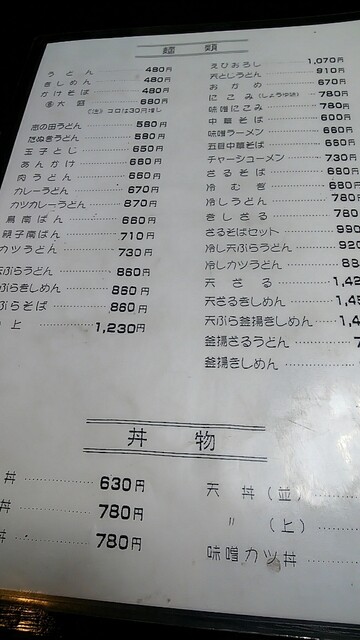 麺類
うどん 480円
きしめん 480円
かけそば 480円
大盛 680円
コロは30円増し
志の田うどん 580円
たぬきうどん 580円
玉子とじ 650円
あんかけ 660円
肉うどん 660円
カレーうどん 670円
カツカレーうどん 870円
鳥南ばん 660円
親子南ばん 710円
カツうどん 730円
天ぷらうどん 860円
ぷらきしめん 860円
ぷらそば 860円
上 1,230円
えびおろし 1,070円
天とじうどん 910円
おかめ 670円
にこみ(しょうゆ味) 780円
味噌にこみ 780円
中華そば 600円
味噌ラーメン 660円
五目中華そば 660円
チャーシューメン 730円
ざるそば 680円
冷むぎ 680円
冷しうどん 780
きしざる 780
ざるそばセット 990
冷し天ぷらうどん 920
冷しカツうどん 88
天ざる 1,42
天ざるきしめん 1,4
天ぷら釜揚きしめん 1,4
釜揚ざるうどん 7
釜揚きしめん
丼物
丼 630円
丼 780円
丼 780円
天丼(並)
〃(上)
味噌カツ丼